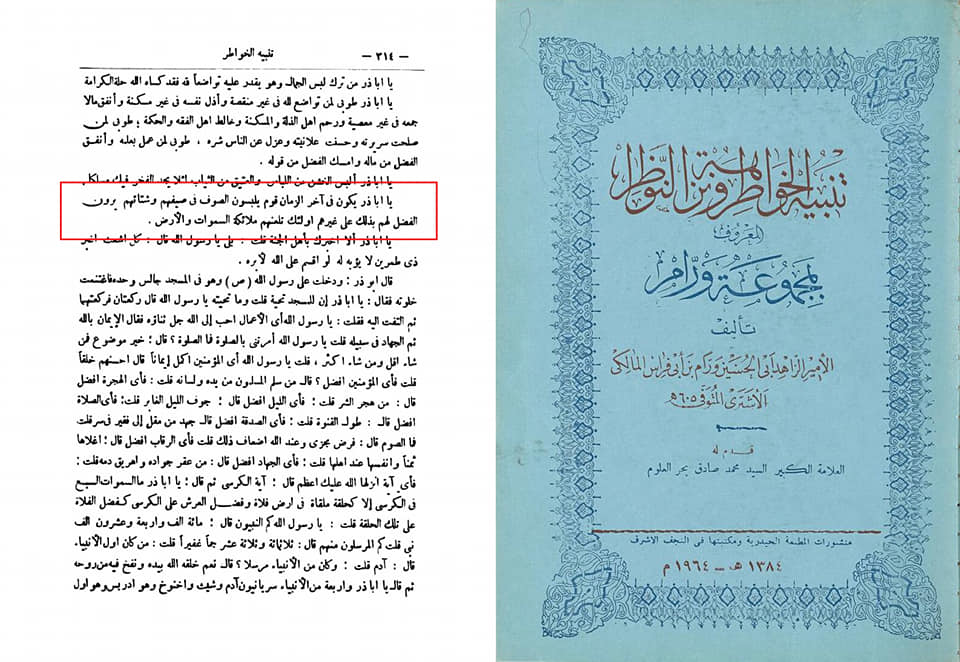 — ٣١٤ — تنبيه الخواطر
يا ابا ذر من ترك لبس الجمال وهو يقدر عليه تواضعاً لله فقد كساه الله حلة الكرامة
يا ابا ذر طوبى لمن تواضع لله فى غير منقصة وأذل نفسه فى غير مسكنة وأنفق مالا
جمعه فى غير معصية ورحم اهل الذلة والمسكنة وخالط اهل الفقه والحكمة ؛ طوبى لمن
صلحت سريرته وحسنت علانيته وعزل عن الناس شره ، طوبى لمن عمل بعلمه وأنفق
الفضل من ماله وامسك الفضل من قوله .
يا ابا ذر ألبس الخشن من اللباس والصفيق من الثياب لئلا يجد الفخر فيك مسلكا
يا ابا ذر يكون فى آخر الزمان قوم يلبسون الصوف فى صيفهم وشتائهم يرون
الفضل لهم بذلك على غيرهم اولئك تلعنهم ملائكة السموات والأرض .
يا ابا ذر ألا اخبرك بأهل الجنة قلت : بلى يا رسول الله قال : كل اشعث اغبر
ذى طمرين لا يؤبه له لو اقسم على الله لأبره .
قال ابو ذر : ودخلت على رسول الله (ص) وهو فى المسجد جالس وحده فاغتنمت
خلوته فقال : يا ابا ذر إن للمسجد تحية قلت وما تحيته يا رسول الله قال ركعتان فركعتهما
ثم التفت اليه فقلت : يا رسول الله أى الأعمال احب إلى الله جل ثناؤه فقال الإيمان بالله
ثم الجهاد فى سبيله قلت يا رسول الله أمرتنى بالصلوة فما الصلوة ؟ قال : خير موضوع فمن
شاء اقل ومن شاء اكثر ، قلت يا رسول الله أى المؤمنين اكمل إيماناً قال احسنهم خلقاً
قلت فأى المؤمنين افضل ؟ قال من سلم المسلمون من يده ولسانه قلت : فأى الهجرة افضل
قال : من هجر الشر قلت : فأى الليل افضل قال : جوف الليل الغابر قلت: فأى الصلاة
افضل قال : طول القنوت قلت : فأى الصدقة افضل قال جهد من مقل إلى فقير فى سر قلت
فا الصوم قال : فرض مجزى وعند الله اضعاف ذلك قلت فأى الرقاب افضل قال : اغلاها
ثمناً وانفسها عند اهلها قلت : فأى الجهاد افضل قال : من عقر جواده واهريق دمه قلت :
فأى آية انزلها الله عليك اعظم قال : آية الكرسى ثم قال : يا ابا ذر ما السموات السبع
فى الكرسى إلا كحلقة ملقاة فى ارض فلاة وفضل العرش على الكرسى كفضل الفلاة
على تلك الحلقة قلت : يا رسول الله كم النبيون قال : مائة الف واربعة وعشرون الف
نبي قلت كم المرسلون منهم قال : ثلاثمائة وثلاثة عشر جماً غفيراً قلت : من كان اول الأنبياء
قال : آدم قلت : وكان من الأنبياء مرسلا ؟ قال نعم خلقه الله بيده ونفخ فيه من روحه
ثم قال يا ابا ذر واربعة من الأنبياء سريانيون آدم وشيث واخنوخ وهو ادريس وهو اول
تنبيه الخواطر ونزهة النواظر
المعروف
بمجموعة ورام
تأليف
الأمير الزاهد ابى الحسين ورام بن أبى فراس المالكى
الاشترى المتوفى ٦٠٥ هـ
قدم له
العلامة الكبير السيد محمد صادق بحر العلوم
منشورات المطبعة الحيدرية ومكتبتها فى النجف الاشرف
١٣٨٤ هـ - ١٩٦٤ م